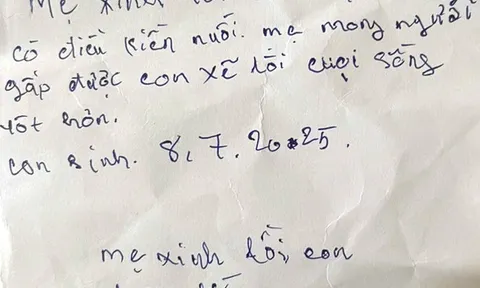 mẹ xinh
có điều kiến nuối. mẹ mong người
gấp được con xẽ tồi cuọi sống
tốt hơn.
con sinh. 8. 7. 2025.
mẹ xinh tồi, con